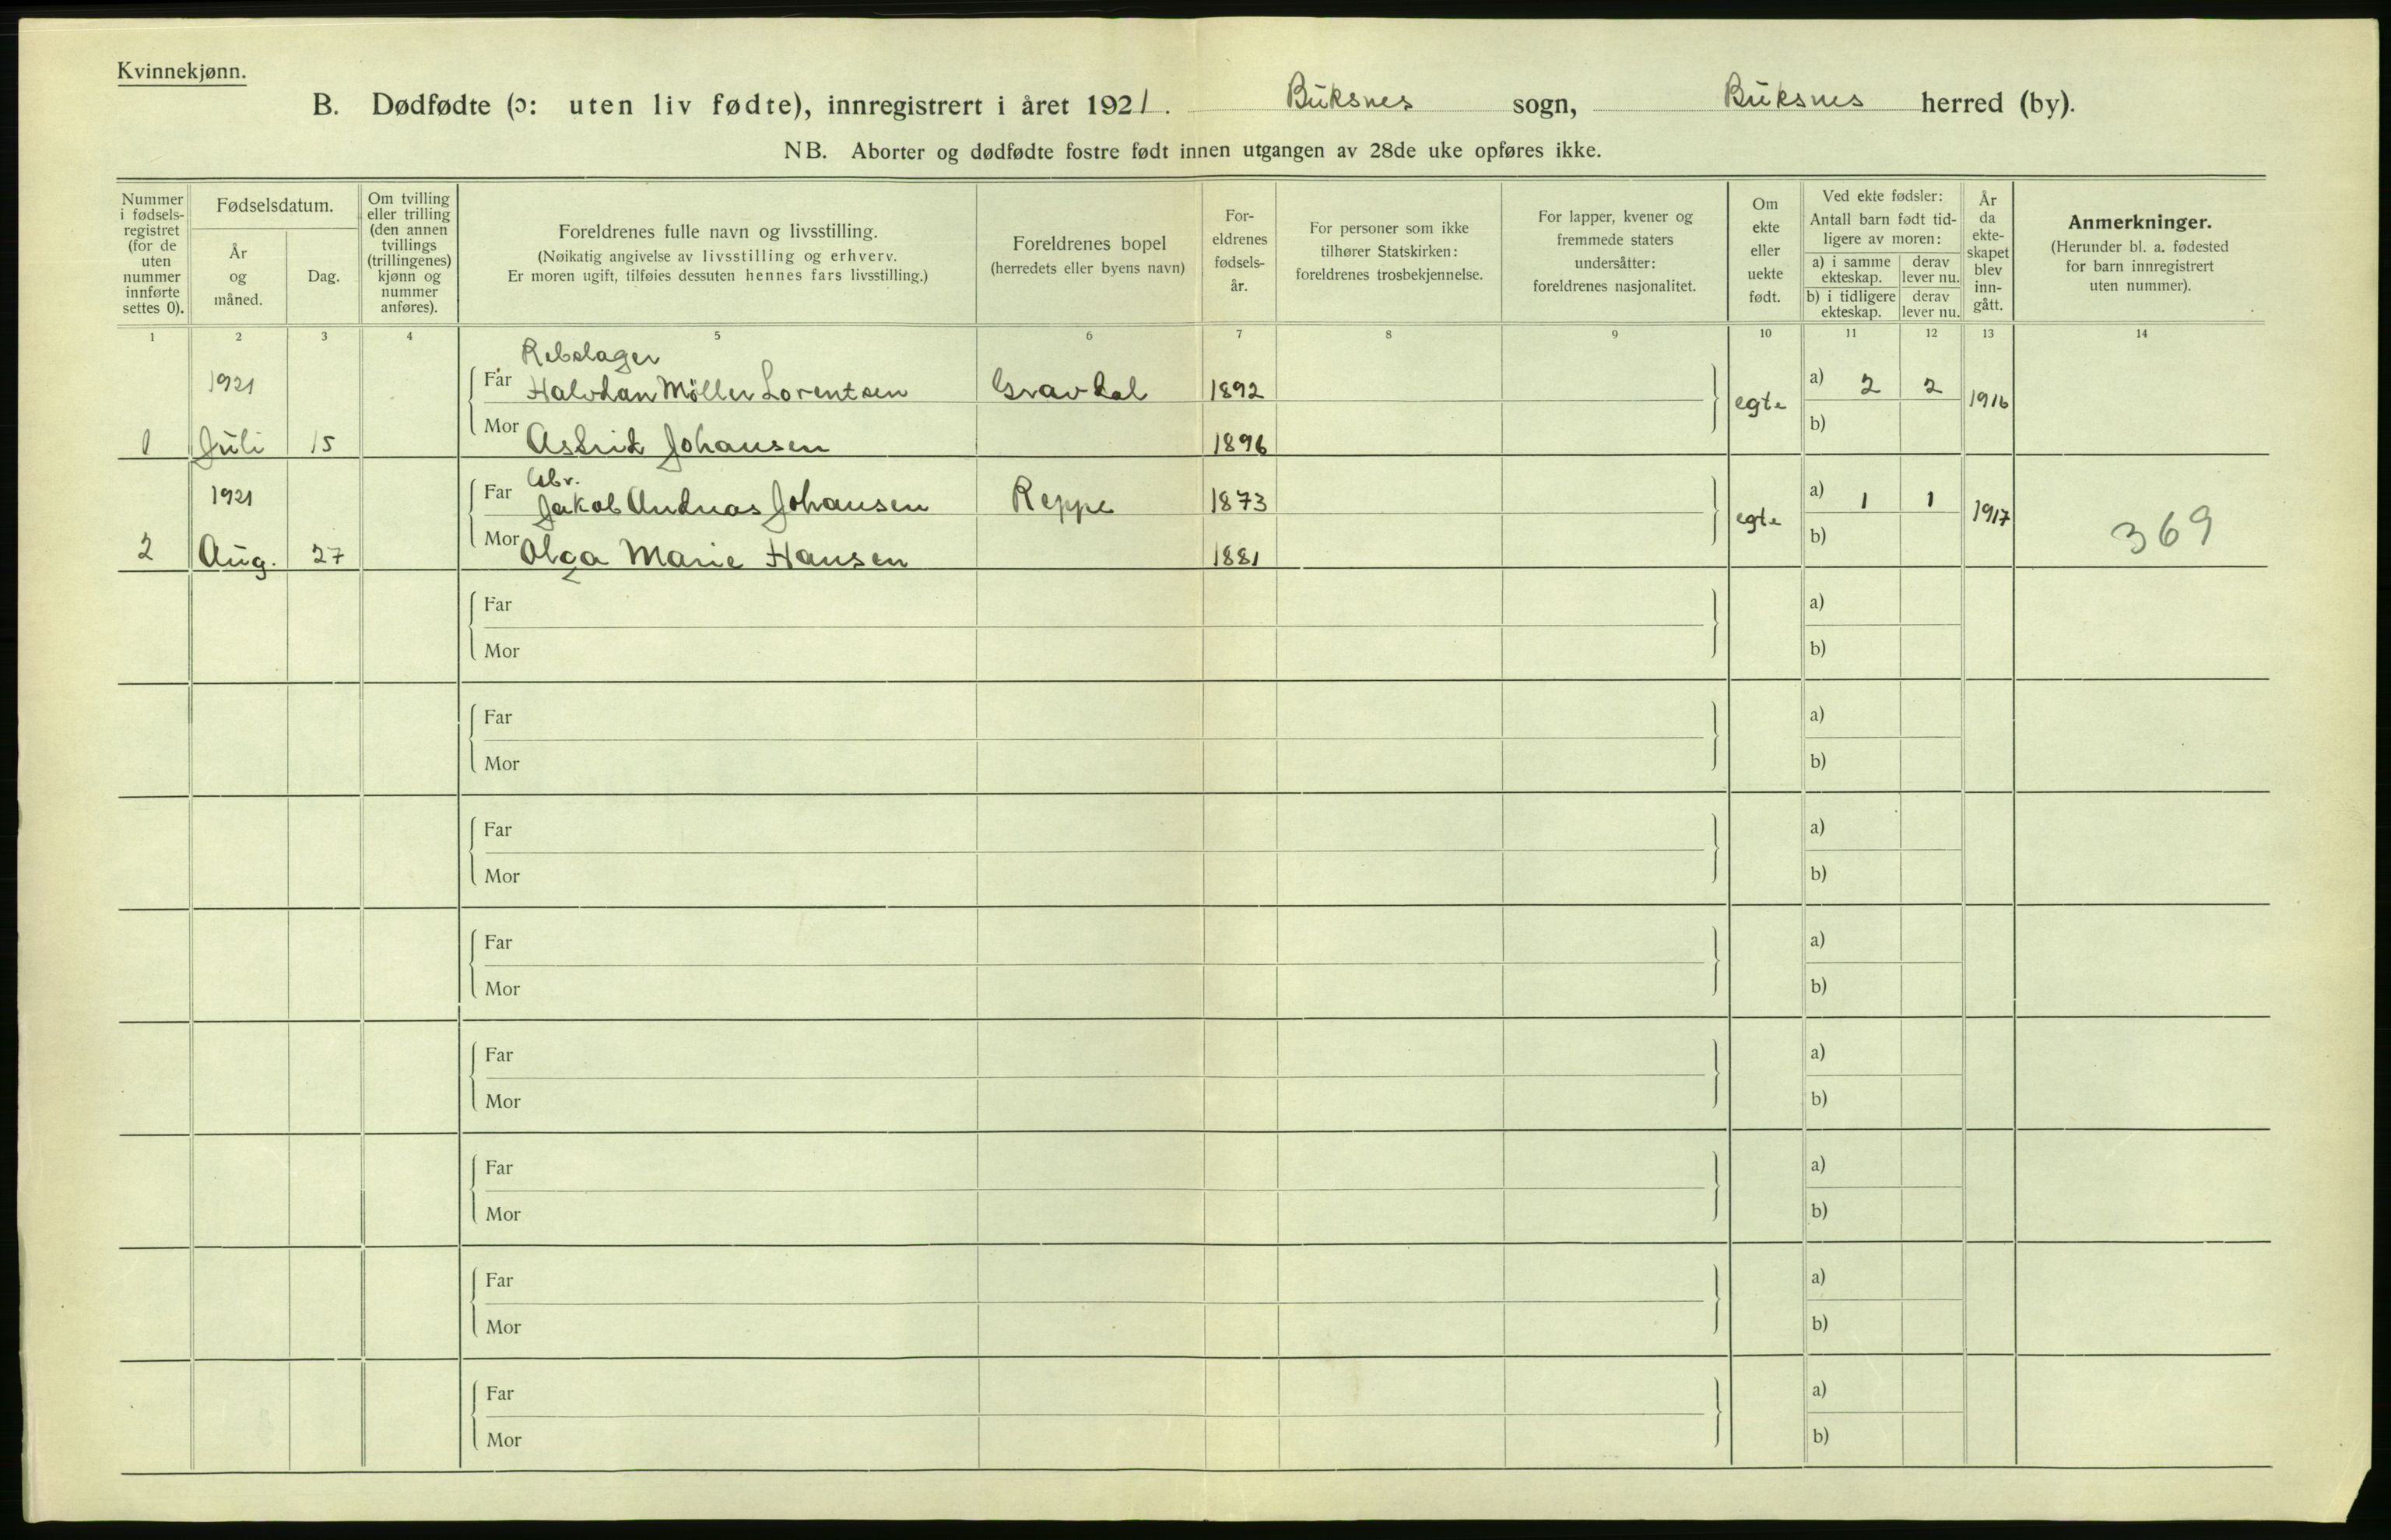 Kvinnekjønn.
B. Dødfødte (ɔ: uten liv fødte), innregistrert i året 1921. Buksnes sogn, Buksnes herred (by).
NB. Aborter og dødfødte fostre født innen utgangen av 28de uke opføres ikke.
Nummer i fødsels-registret (for de uten nummer innførte settes 0).
Fødselsdatum.
År og måned.
Dag.
Om tvilling eller trilling (den annen tvillings (trillingenes) kjønn og nummer anføres).
Foreldrenes fulle navn og livsstilling.
(Nøikatig angivelse av livsstilling og erhverv.
Er moren ugift, tilføies dessuten hennes fars livsstilling.)
Foreldrenes bopel
(herredets eller byens navn)
For-eldrenes fødsels-år.
For personer som ikke tilhører Statskirken: foreldrenes trosbekjennelse.
For lapper, kvener og fremmede staters undersåtter: foreldrenes nasjonalitet.
Om ekte eller uekte født.
Ved ekte fødsler:
Antall barn født tid-ligere av moren:
a) i samme ekteskap.
derav lever nu.
b) i tidligere ekteskap.
derav lever nu.
År da ekte-skapet blev inn-gått.
Anmerkninger.
(Herunder bl. a. fødested for barn innregistrert uten nummer).
1 2 3 4 5 6 7 8 9 10 11 12 13 14
Rebslager
1921 Far Halvdan Möller Lorentsen Gravdal 1892 egte a) 2 2 1916
1 Juli 15 Mor Astrid Johansen 1896 b)
Gbr.
1921 Far Jakob Andreas Johansen Reppe 1873 egte a) 1 1 1917
2 Aug. 27 Mor Olga Marie Hansen 1881 b) 369
Far a)
Mor b)
Far a)
Mor b)
Far a)
Mor b)
Far a)
Mor b)
Far a)
Mor b)
Far a)
Mor b)
Far a)
Mor b)
Far a)
Mor b)